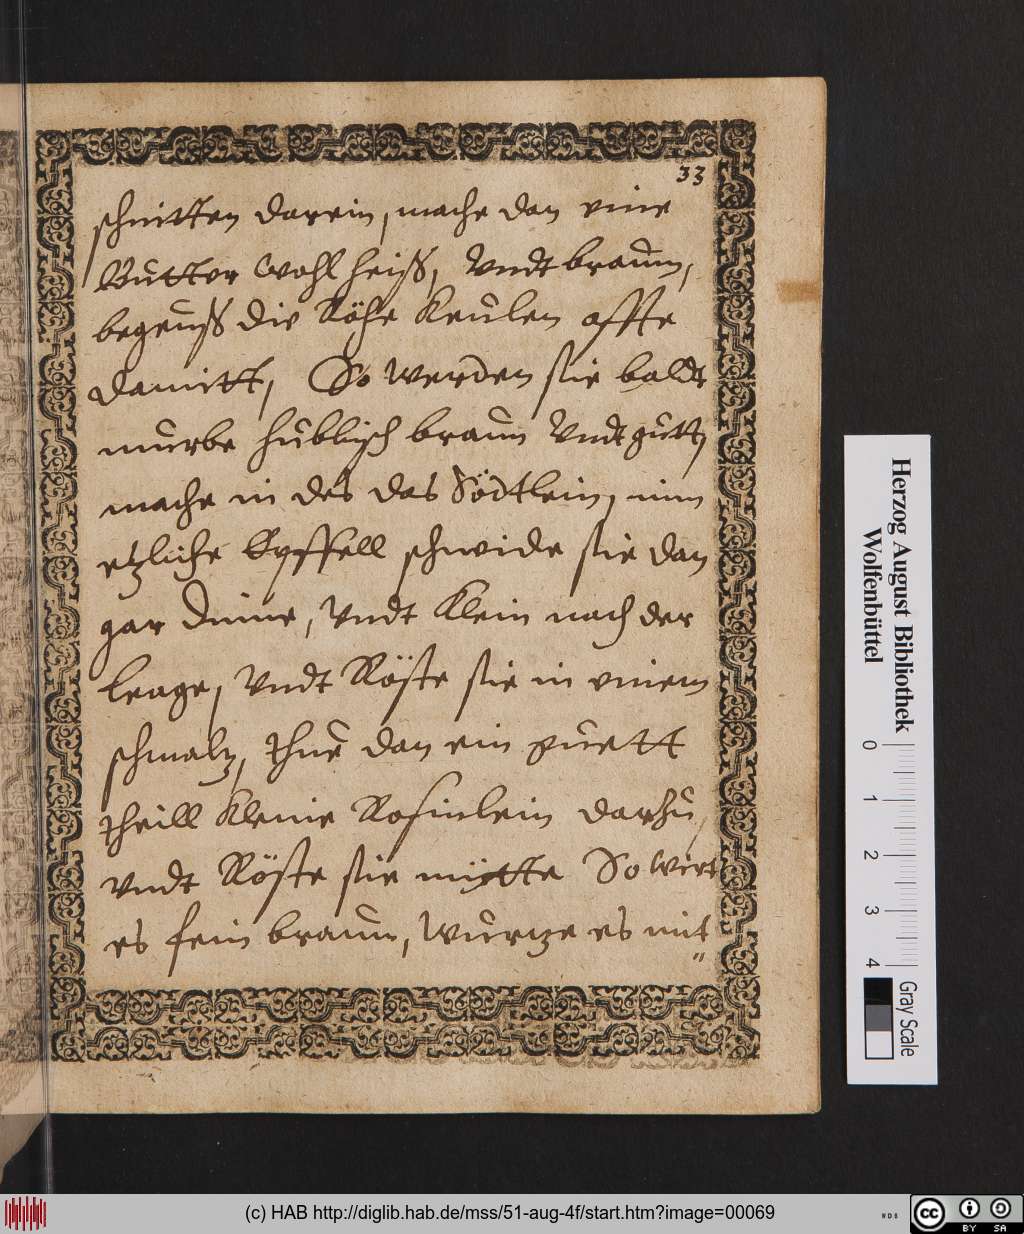 33
schnitten darein, mache dan eine
Butter wohl heiß, vndt braun,
begeuß die Röhe Keulen offte
damitt, So werden sie baldt
murbe hüblisch braun vndt gutt,
mache in des das Södtlein, nim
etzliche Epffell schneide sie dan
gar dünne, vndt Klein nach der
leage, vndt Röste sie in einem
schmaltz, thue dan ein guett
theill Kleine Rosinlein darzu,
vndt Röste sie mitte So wirt
es fein braun, würtze es mit
"
Herzog August Bibliothek
Wolfenbüttel
0 1 2 3 4
Gray Scale
(c) HAB http://diglib.hab.de/mss/51-aug-4f/start.htm?image=00069
WDB
cc BY SA